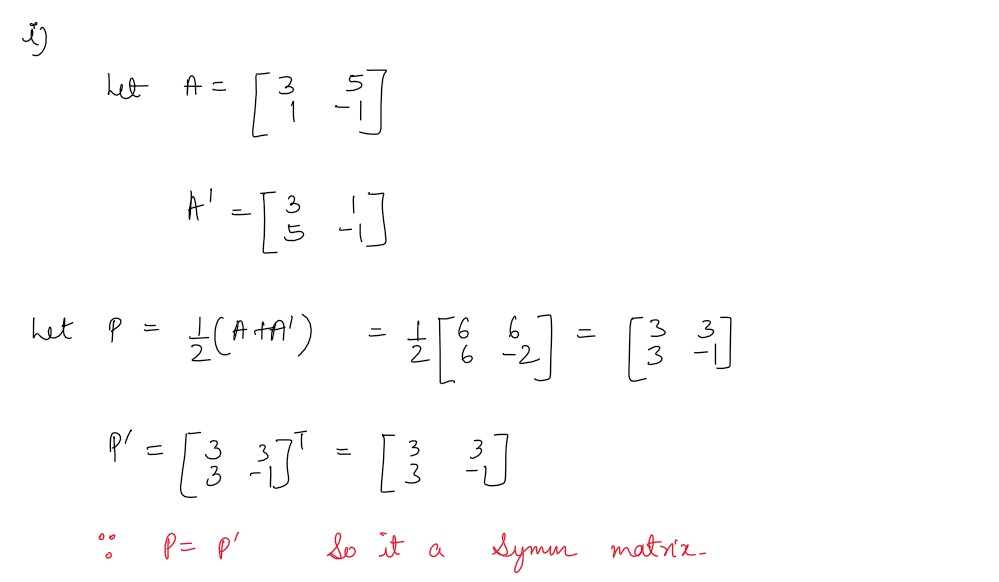 i)
Let A = [ 3 5
1 -1 ]
A' = [ 3 1
5 -1 ]
Let P = 1/2 (A+A') = 1/2 [ 6 6
6 -2 ] = [ 3 3
3 -1 ]
P' = [ 3 3
3 -1 ]ᵀ = [ 3 3
3 -1 ]
∵ P = P' So it a Symm matrix.